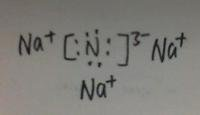 Na⁺ [:N̈:]³⁻ Na⁺
Na⁺